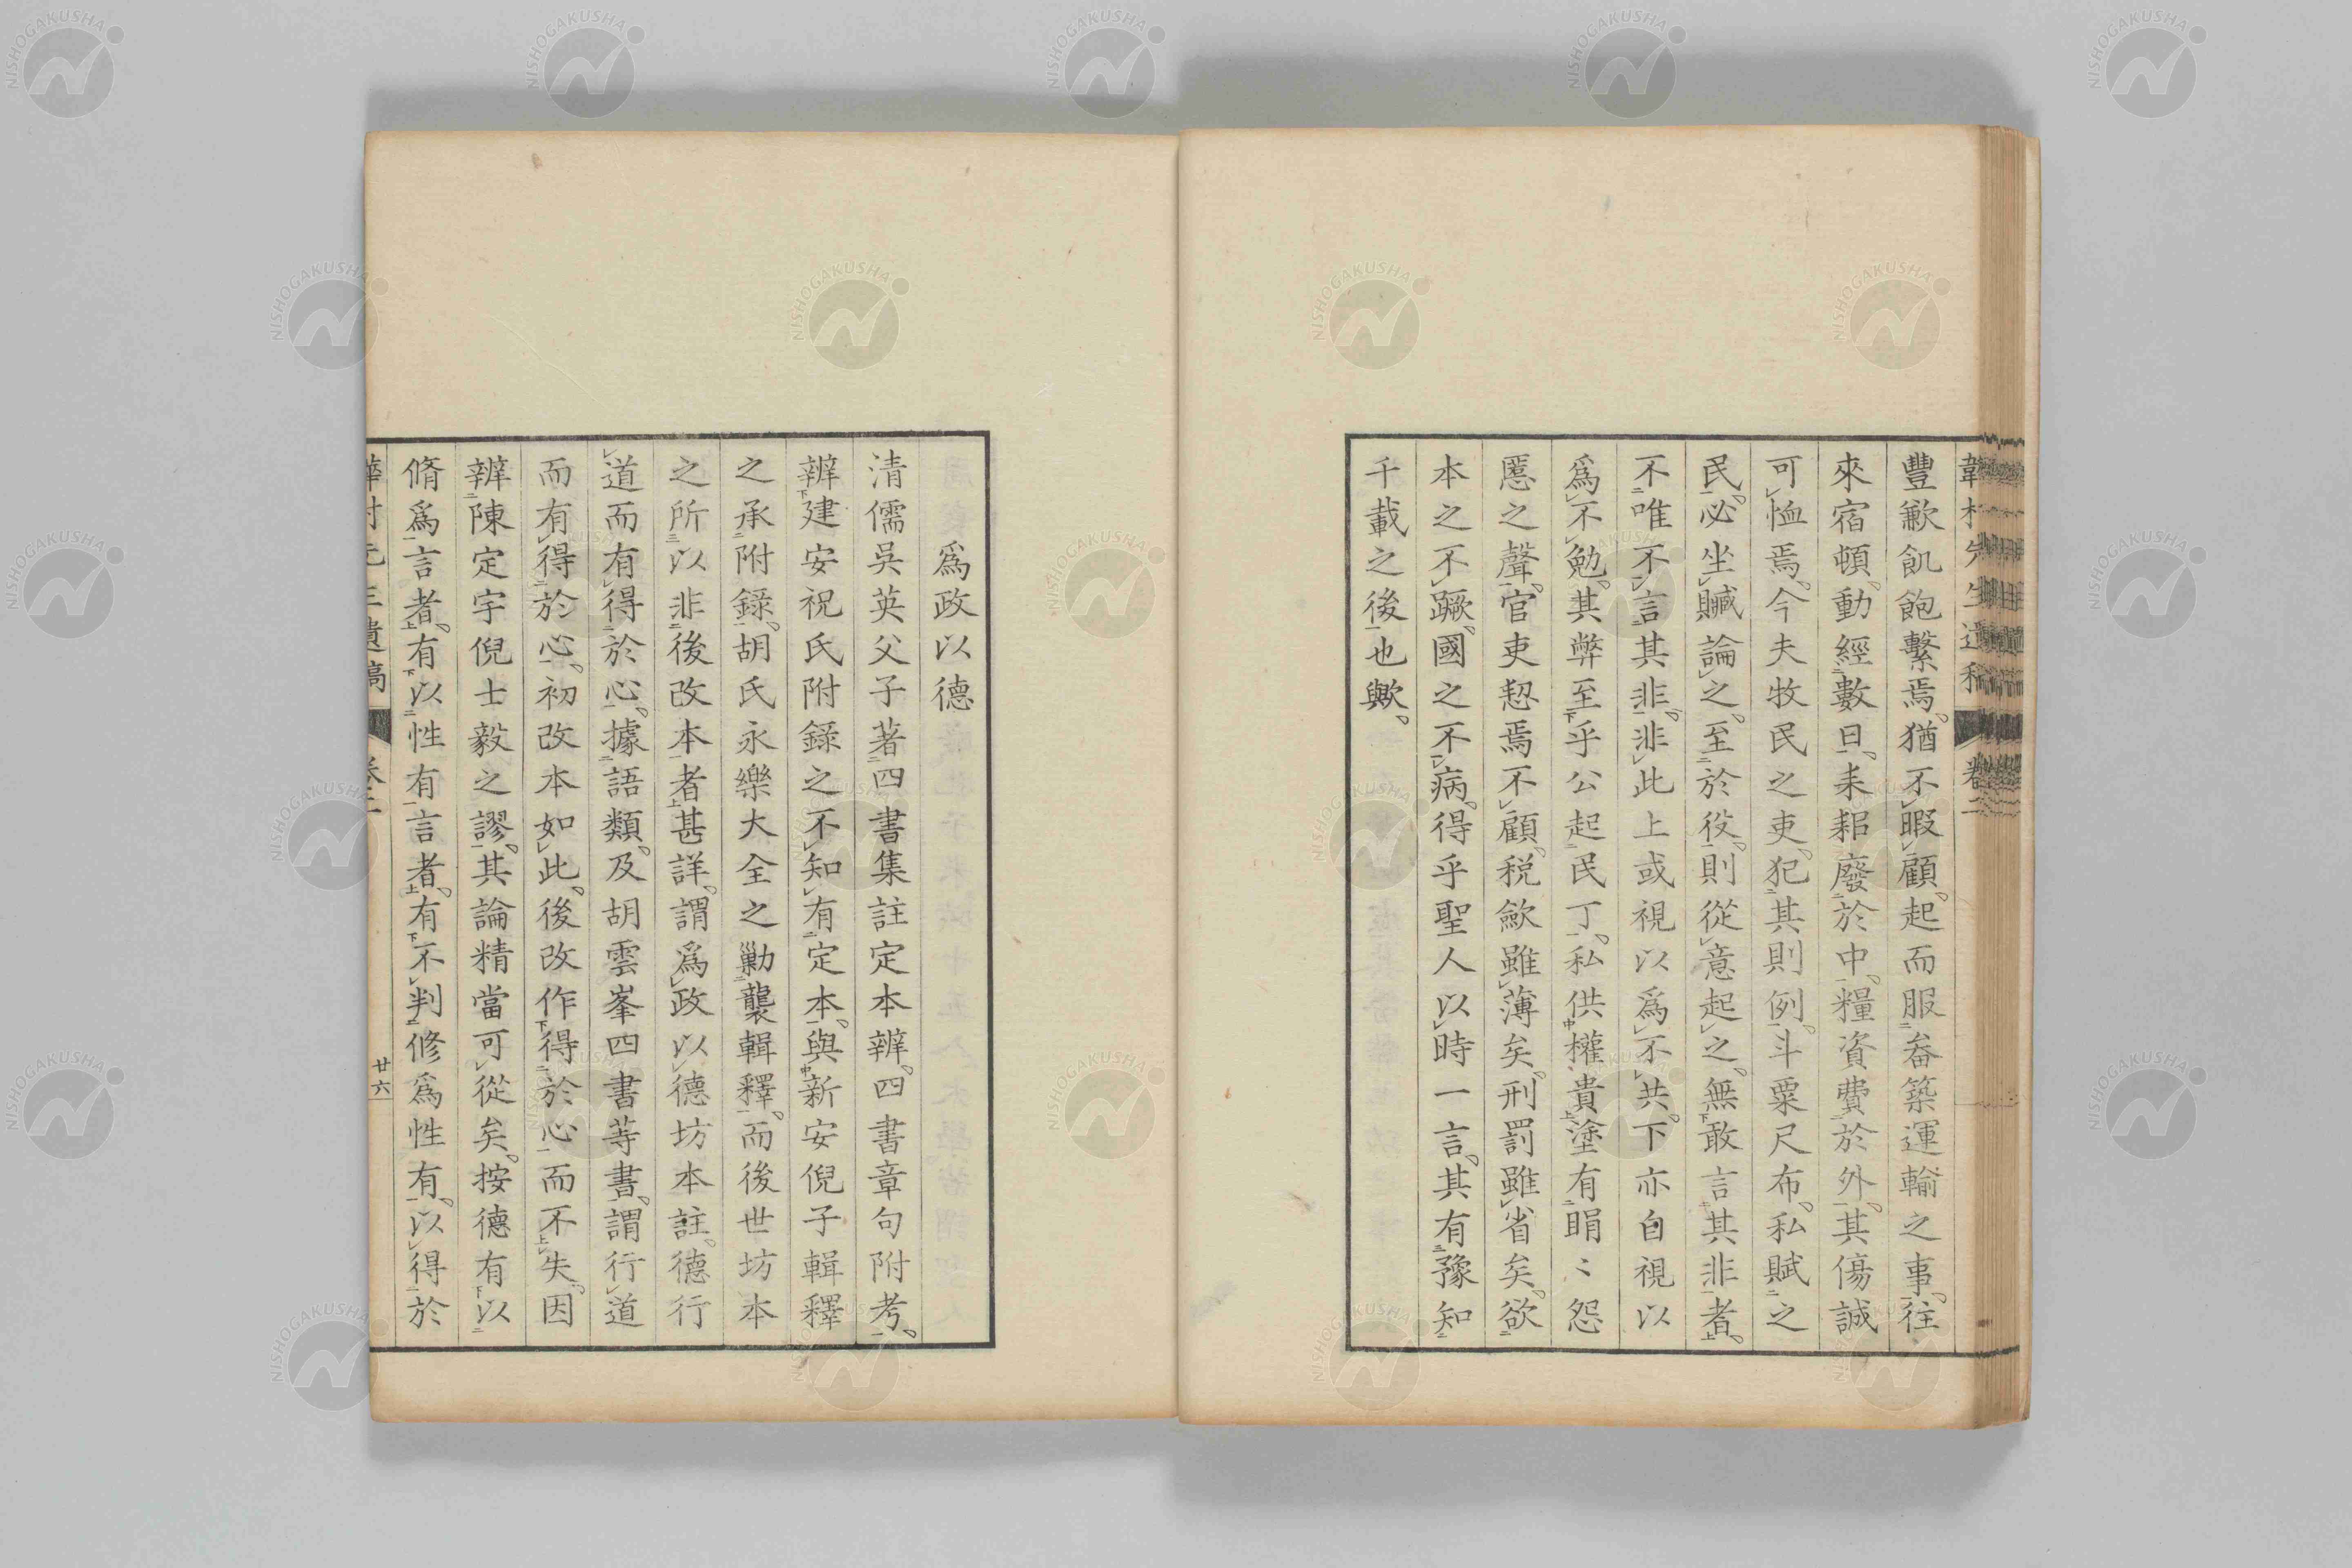 豐歉飢飽繫焉。猶不暇顧。起而服畚築運輸之事。往
來宿頓。動經數日。耒耜廢於中。糧資費於外。其傷誠
可恤焉。今夫牧民之吏。犯其則例。斗粟尺布。私賦之
民。必坐贓論之。至於役。則從意起之。無敢言其非者。
不唯不言其非。非此上或視以爲不共。下亦自視以
爲不勉。其弊至乎公起民丁。私供權貴。塗有睊〻怨
慝之聲。官吏恝焉不顧。税斂雖薄矣。刑罰雖省矣。欲
本之不蹶。國之不病。得乎聖人以時一言。其有豫知
千載之後也歟。
爲政以德
清儒吳英父子著四書集註定本辨。四書章句附考。
辨建安祝氏附錄之不知有定本。與新安倪子輯釋
之承附錄。胡氏永樂大全之勦襲輯釋。而後世坊本
之所以非後改本者甚詳。謂爲政以德坊本註。德行
道而有得於心。據語類。及胡雲峯四書等書。謂行道
而有得於心。初改本如此。後改作得於心而不失。因
辨陳定宇倪士毅之謬。其論精當可從矣。按德有以
脩爲言者。有以性有言者。有不判修爲性有。以得於
卷二
廿六